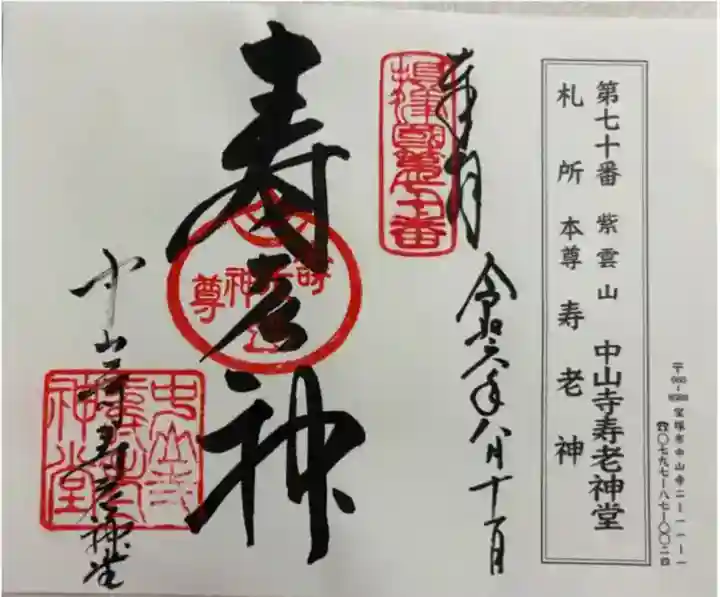 第七十番 紫雲山 中山寺寿老神堂
札所本尊 寿老神
宝塚市中山寺二ー一一ー一
☎〇七九七ー八七ー〇〇二四
奉拝
摂津国第七十番
令和六年八月十一日
寿老神
中山寺寿老神堂
中山寺
寿老
神堂